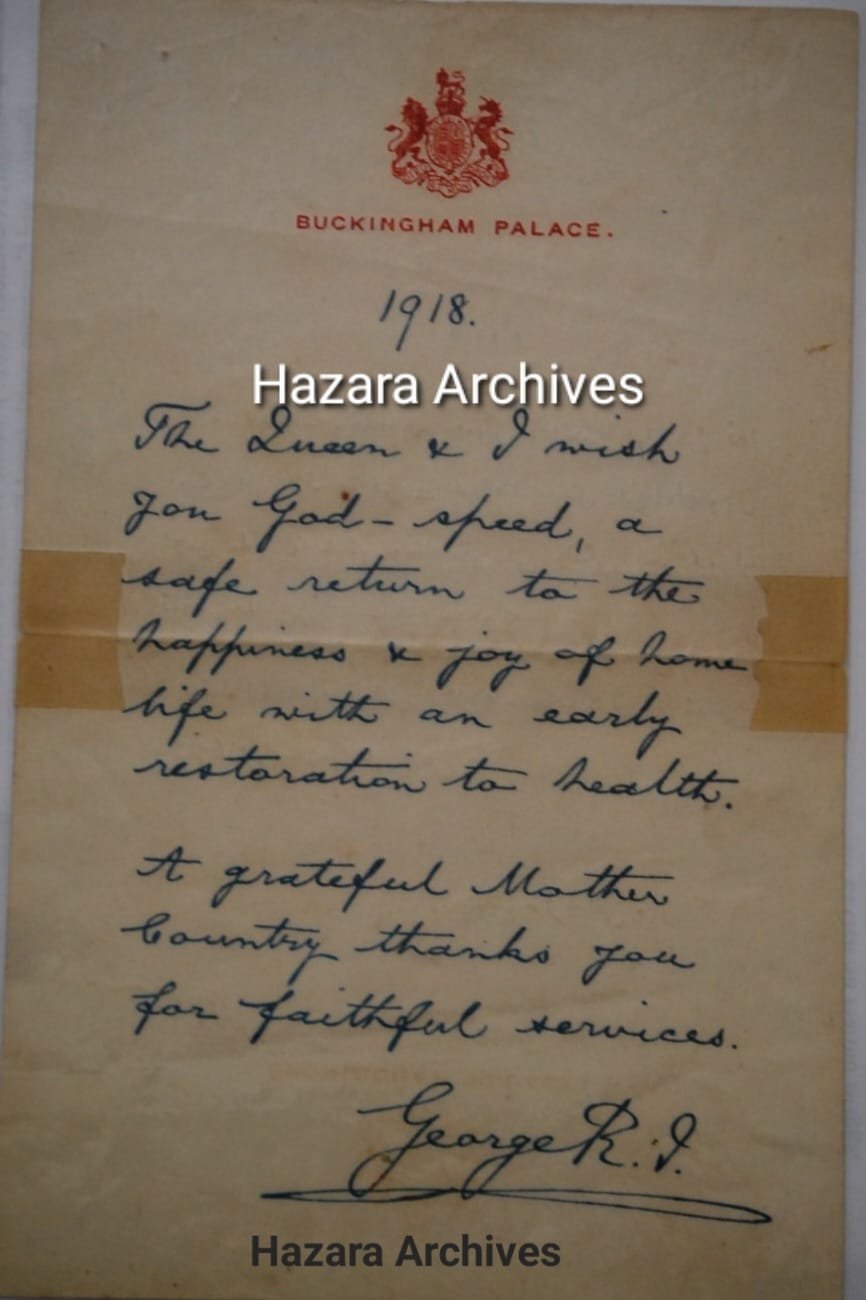 BUCKINGHAM PALACE.
1918.
Hazara Archives
The Queen & I wish
you God-speed, a
safe return to the
happiness & joy of home
life with an early
restoration to health.
A grateful Mother
Country thanks you
for faithful services.
George R.I.
Hazara Archives